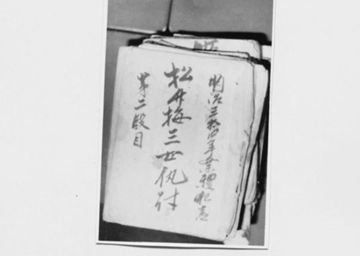 明治三拾四年
松竹梅三世仇討
第二段目